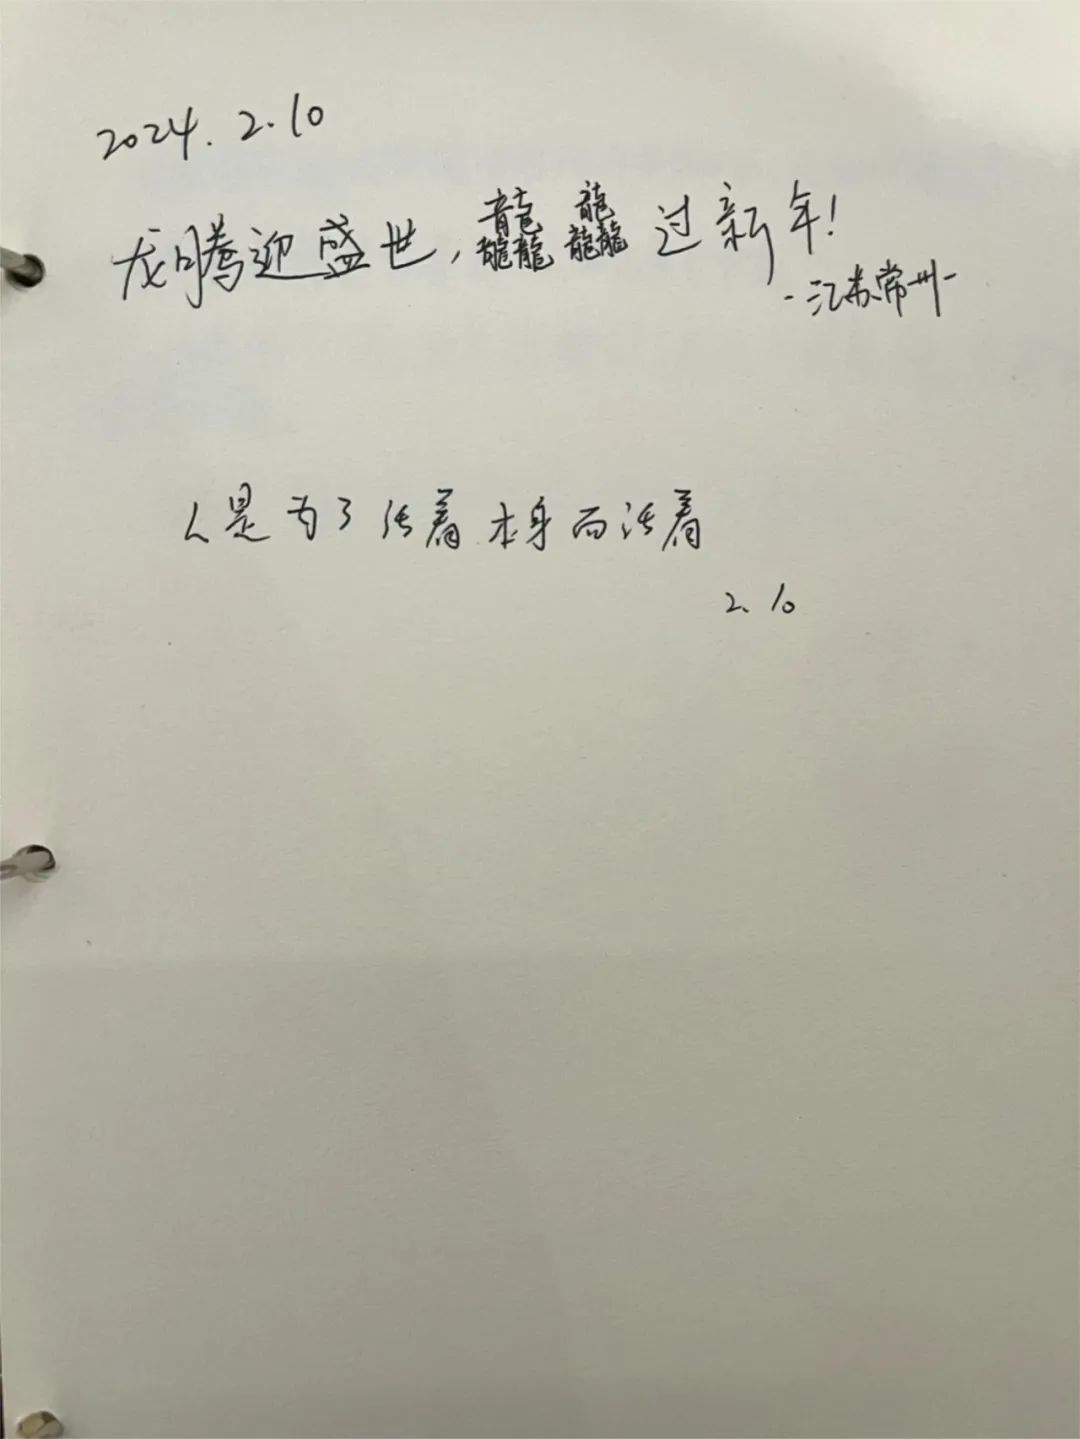 2024. 2.10
龙腾迎盛世,龘龘过新年!
-江苏常州-
人是为了活着本身而活着
2. 10